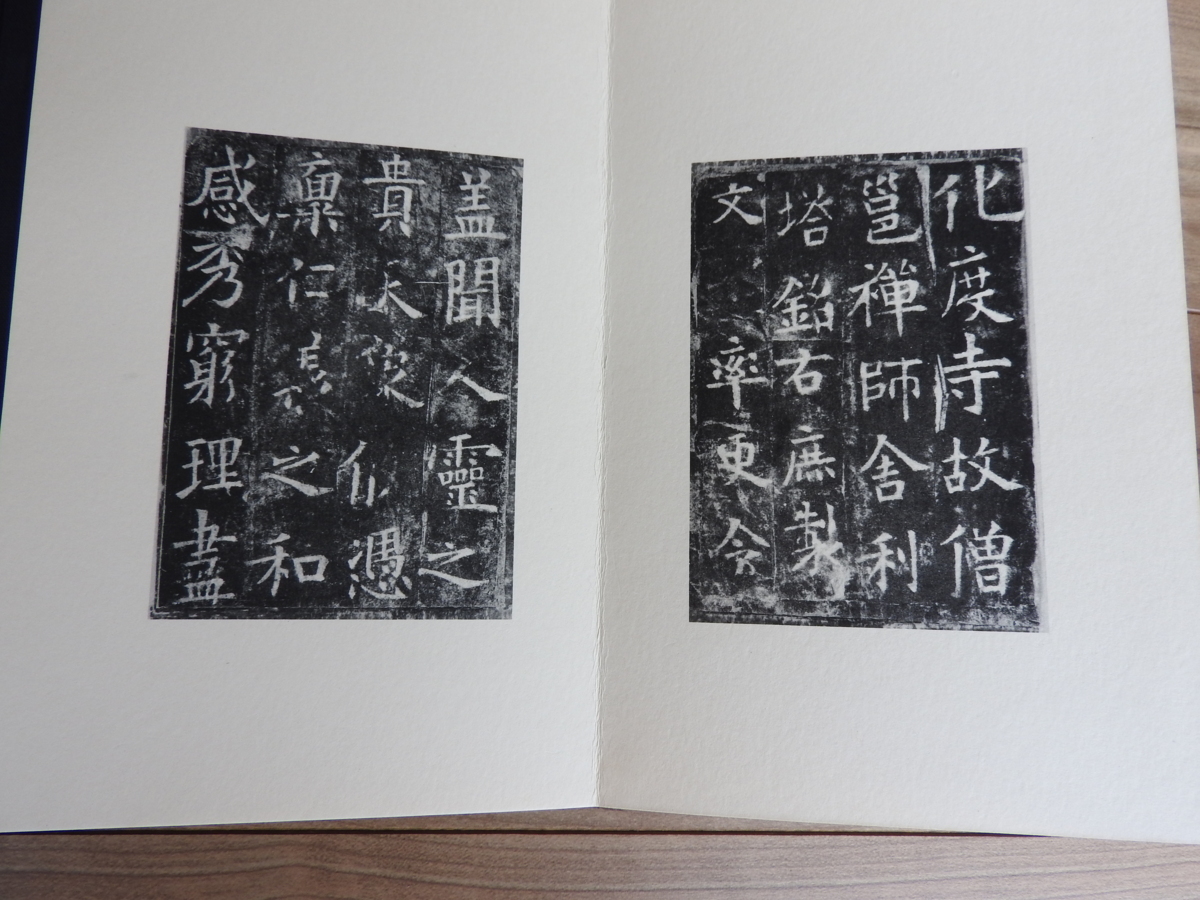 化度寺故僧
邕禪師舍利
塔銘右庶製
文率更令
盖聞人靈之
貴天象憑
稟仁之和
感秀窮理盡